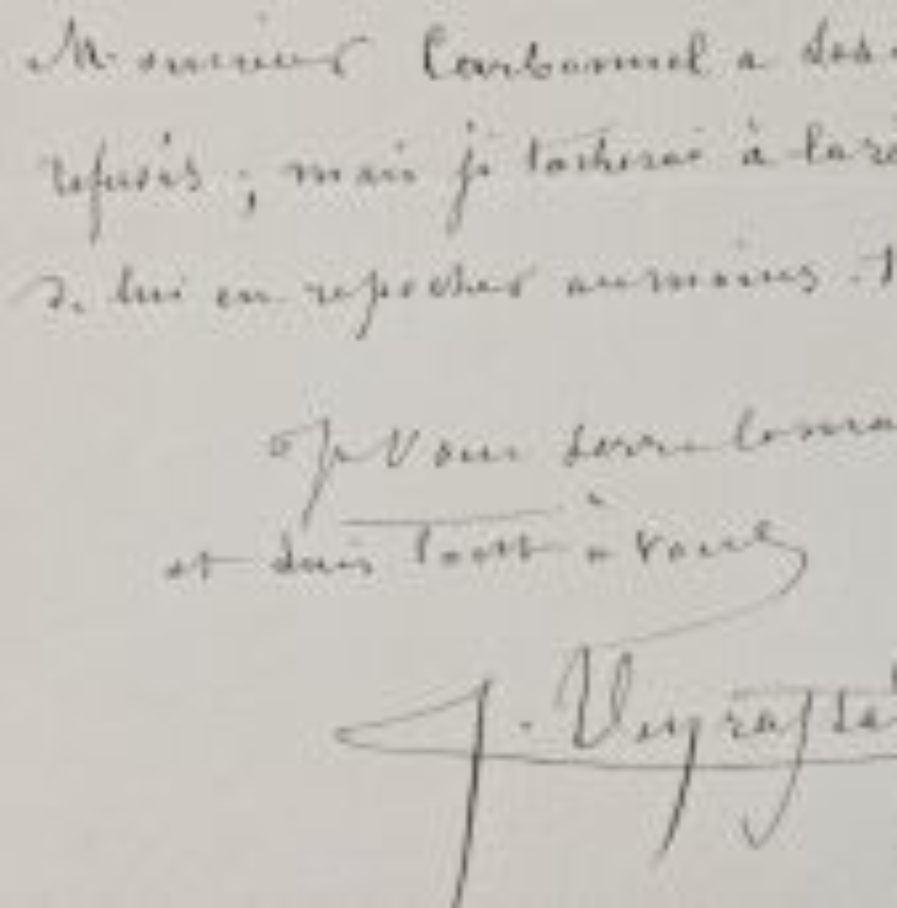 Monsieur Carbonnel a des
refusés ; mais je tacherai à la
de lui en repecher au moins
Je Vous serre la ma
et suis tout à Vous
J. Veyrassa